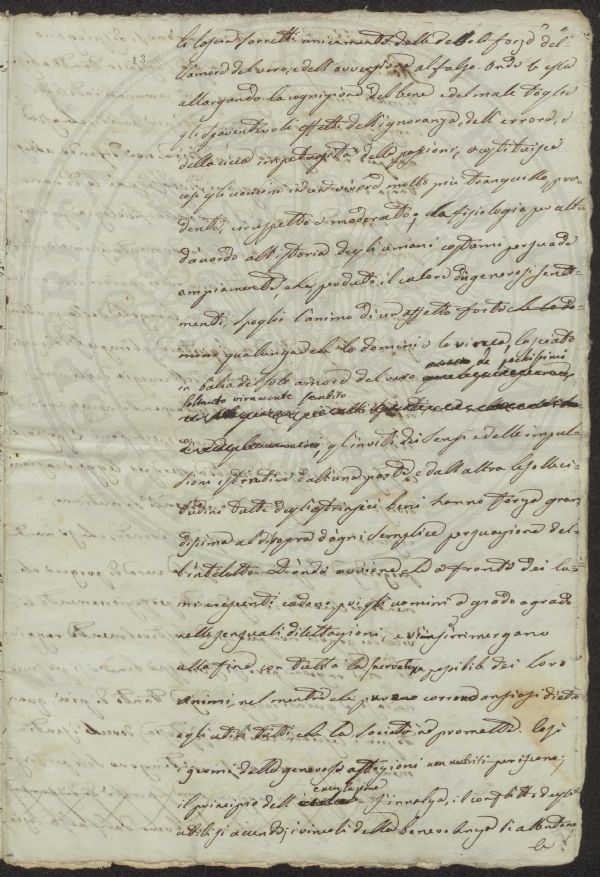 le lascia sorretti unicamente dalla debole forza del-
l'amore del vero, e dell'avversione al falso. Onde
allargando la cognizione del bene e del male toglie
gli spaventevoli effetti dell'ignoranza, dell'errore, e
della cieca impetuosità delle passioni, e costituisce
così gli uomini in un vivere molto più tranquillo, pru-
dente, circospetto e moderato; la fisiologia per altro
d'accordo all'istoria degli umani costumi persuade
ampiamente, che, perduto il calore di generosi senti-
menti, spoglio l'animo di un affetto forte che lo do-
mini qualunque che lo domini e lo vinca, lasciato
in balia del solo amore del vero da pochissimi
soltanto vivamente sentito
gl'inviti dei sensi e delle impul-
sioni istintive dall'una parte, e dall'altra le solleci-
tudini tutte degli estrinseci beni hanno forza gran-
dissima al disopra d'ogni semplice persuasione del-
l'intelletto. D'onde avviene che a fronte dei lu-
mi crescenti cadono poi gli uomini a grado a grado
nelle sensuali dilettazioni, e vi si immergano
alla fine con tutta la possibile dei loro
animi, nel mentre che corrono ansiosi dietro
agli utili tutti che la società ne promette. Così
i germi delle generose affezioni non nobili periscono;
il principio dell' emulazione s'innalza, il conflitto degli
utili si accende, i vincoli della benevolenza si allentano
la